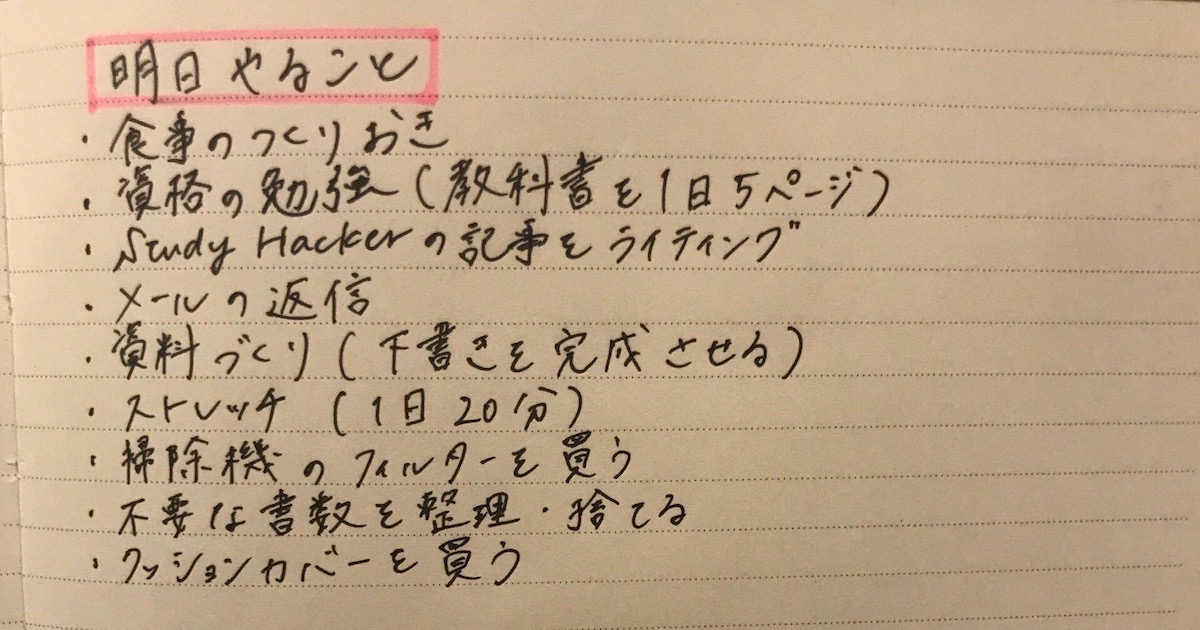 明日やること
・食事のつくりおき
・資格の勉強(教科書を1日5ページ)
・Study Hackerの記事をライティング
・メールの返信
・資料づくり(下書きを完成させる)
・ストレッチ (1日20分)
・掃除機のフィルターを買う
・不要な書数を整理・捨てる
・クッションカバーを買う